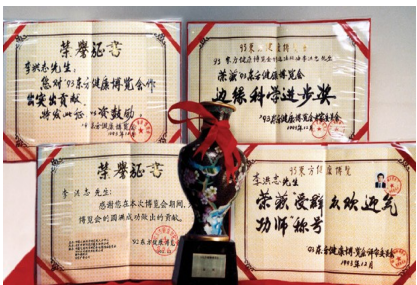 荣誉证书
李洪志先生:
您对'93东方健康博览会作
出突出贡献,
特发此证,以资鼓励
'93东方健康博览会
1993年12月
'93东方健康博览会
李洪志先生:
荣获'93东方健康博览会
边缘科学进步奖
1993年12月
荣誉证书
李洪志先生:
感谢您在本次博览会期间,为
博览会的圆满成功做出的贡献。
'92东方健康博览会
93东方健康博览
李洪志先生
荣获"受群众欢迎气
功师"称号
93东方健康博览会评审委员会
1993年12月